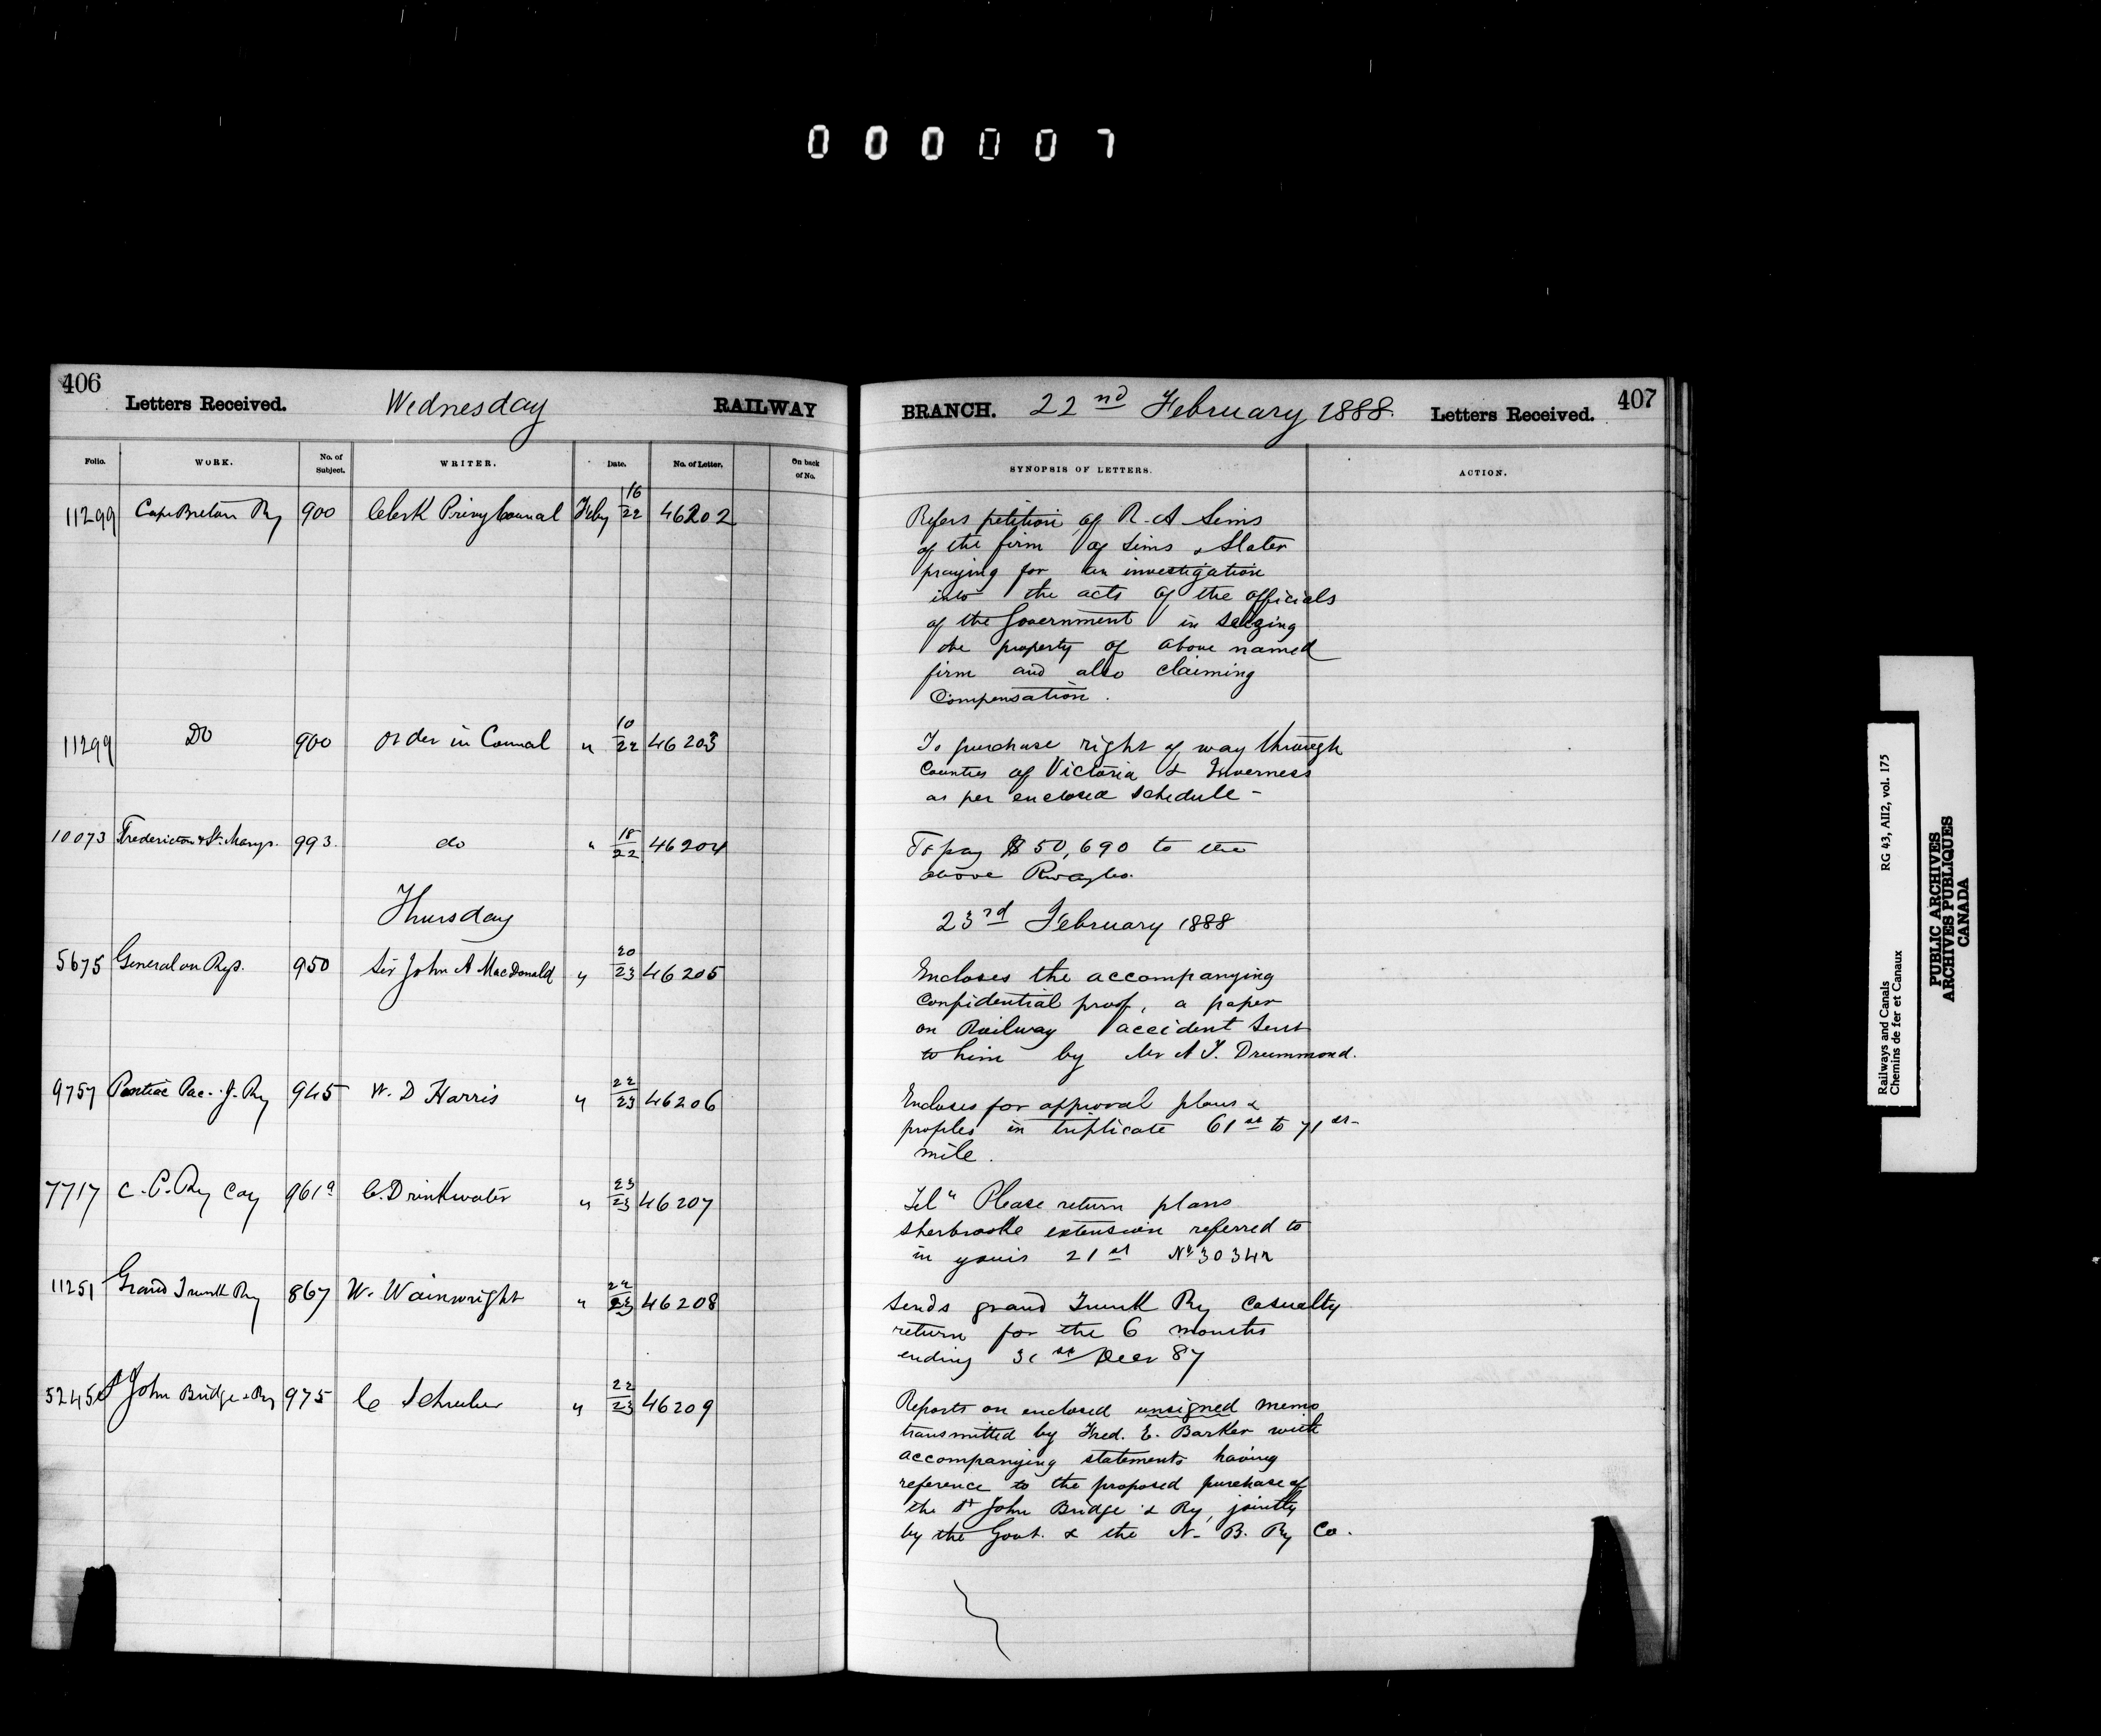 000007
406
Letters Received. Wednesday RAILWAY
Folio. WORK. No. of Subject. WRITER. Date. No. of Letter. On back of No.
11299 Cape Breton Ry 900 Clerk Privy Council Feby 16/22 46202
11299 Do 900 Order in Council " 10/22 46203
10073 Fredericton & St. Marys. 993. do " 18/22 46204
Thursday
5675 General on Rys. 950 Sir John A MacDonald " 20/23 46205
9757 Pontiac Pac. J. Ry 945 W. D Harris " 22/23 46206
7717 C. P. Ry Coy 961a C. Drinkwater " 23/23 46207
11251 Grand Trunk Ry 867 W. Wainwright " 22/23 46208
5245 St John Bridge & Ry 975 C Schreiber " 22/23 46209
BRANCH. 22nd February 1888. Letters Received. 407
SYNOPSIS OF LETTERS. ACTION.
Refers petition of R. A Sims
of the firm of Sims & Slater
praying for an investigation
into the acts of the officials
of the Government in seizing
the property of above named
firm and also claiming
Compensation.
To purchase right of way through
Counties of Victoria & Inverness
as per enclosed schedule -
To pay $50,690 to the
above Rway Co.
23rd February 1888
Encloses the accompanying
Confidential proof, a paper
on Railway accident sent
to him by Mr A T. Drummond.
Encloses for approval plans &
profiles in triplicate 61st to 71st
mile.
Telm Please return plans
Sherbrooke extension referred to
in yours 21st No 30342
Sends Grand Trunk Ry Casualty
return for the 6 months
ending 31st Decr 87
Reports on enclosed unsigned memo
transmitted by Fred. E. Barker with
accompanying statements having
reference to the proposed purchase of
the St John Bridge & Ry, jointly
by the Govt. & the N. B. Ry Co.
Railways and Canals RG 43, AII2, vol. 175
Chemins de fer et Canaux
PUBLIC ARCHIVES
ARCHIVES PUBLIQUES
CANADA